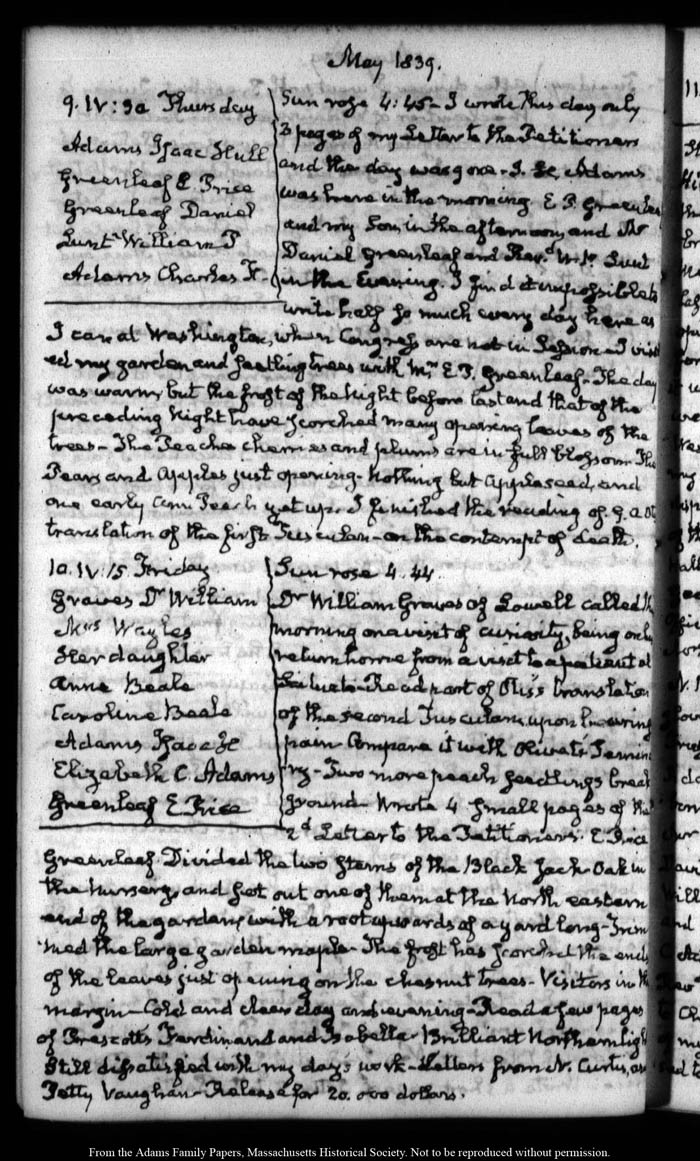 May 1839.
9. IV:30 Thursday
Adams Isaac Hull
Greenleaf E. Price
Greenleaf Daniel
Lunt William P
Adams Charles F.
Sun rose 4:45- I wrote this day only
3 pages of my Letter to the Petitioners
and the day was gone- I. H. Adams
was here in the morning. E. P. Greenleaf
and my Son in the afternoon, and Mr
Daniel Greenleaf and Revd. W. P. Lunt
in the Evening. I find it impossible to
write half so much every day here as
I can at Washington, when Congress are not in Session- I visit
ed my garden and seedling trees with Mr E. P. Greenleaf- The day
was warm, but the frost of the Night before last and that of the
preceding Night have scorched many opening leaves of the
trees- The Peaches cherries and plums are in full blossom- The
Pears and Apples just opening- Nothing but Appleseed, and
one early Peach yet up. I finished the reading of
translation of the first Tusculan- on the contempt of death.
10. IV:15 Friday
Graves Dr William
Mrs Wayles
Her daughter
Anne Beale
Caroline Beale
Adams Isaac H
Elizabeth C. Adams
Greenleaf E. Price
Sun rose 4.44.
Dr William Graves of Lowell called this
morning on a visit of curiosity, being on his
return home from a visit to a patient at
Scituate- Read part of Otis's translation
of the second Tusculan, upon bearing
pain- Compare it with
Two more peach seedlings break
ground- Wrote 4 small pages of the
2d Letter to the Petitioners- E Price
Greenleaf. Divided the two stems of the Black Jack Oak in
the Nursery, and set out one of them at the North eastern
end of the garden, with a root upwards of a yard long- Trim
med the large garden maple- The frost has scorched the ends
of the leaves just opening on the chesnut trees- Visitors in the
margin- Cold and clear day and evening- Read a few pages
of Prescott's Ferdinand and Isabella- Brilliant Northern light
Still dissatisfied with my day's work- Letters from N. Curtis, and
Petty Vaughan- Release for 20.000 dollars.
From the Adams Family Papers, Massachusetts Historical Society. Not to be reproduced without permission.